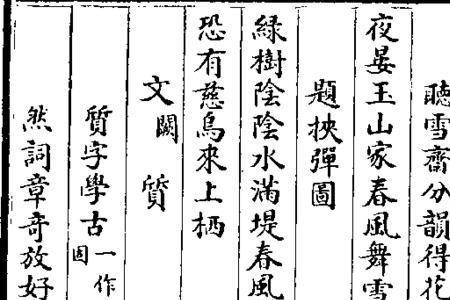 聽雪齋分韻得花
夜晏玉山家春風舞雪
題挾彈圖
綠樹陰陰水滿堤春風
恐有慈烏來上栖
文闕 質
質字學古一作固
然詞章奇放好